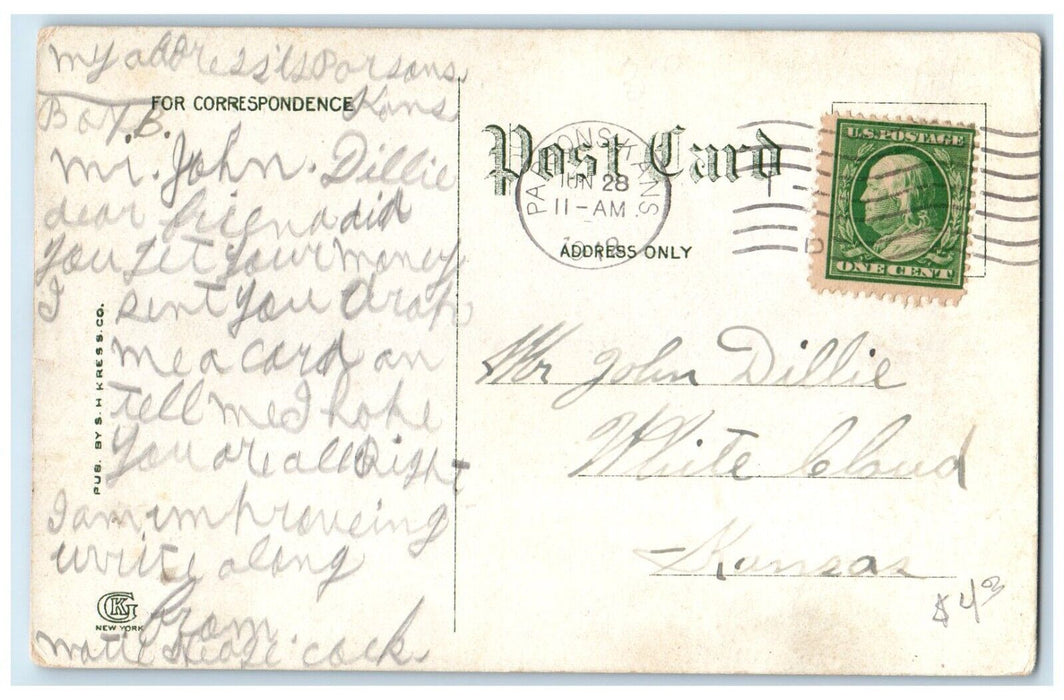 my address is Parsons
Kans
Box. B.
FOR CORRESPONDENCE
Mr. John. Dillie
dear friend did
you get your money
I sent you Drop
me a card an
tell me I hope
you are all Right
I am improveing
write along
from
cock
PUB. BY S. H. KRESS. CO.
CKG
NEW YORK
Post Card
PARSONS KANS
JUN 28
11-AM
ADDRESS ONLY
U.S. POSTAGE
ONE CENT
Mr John Dillie
White Cloud
Kansas
$4